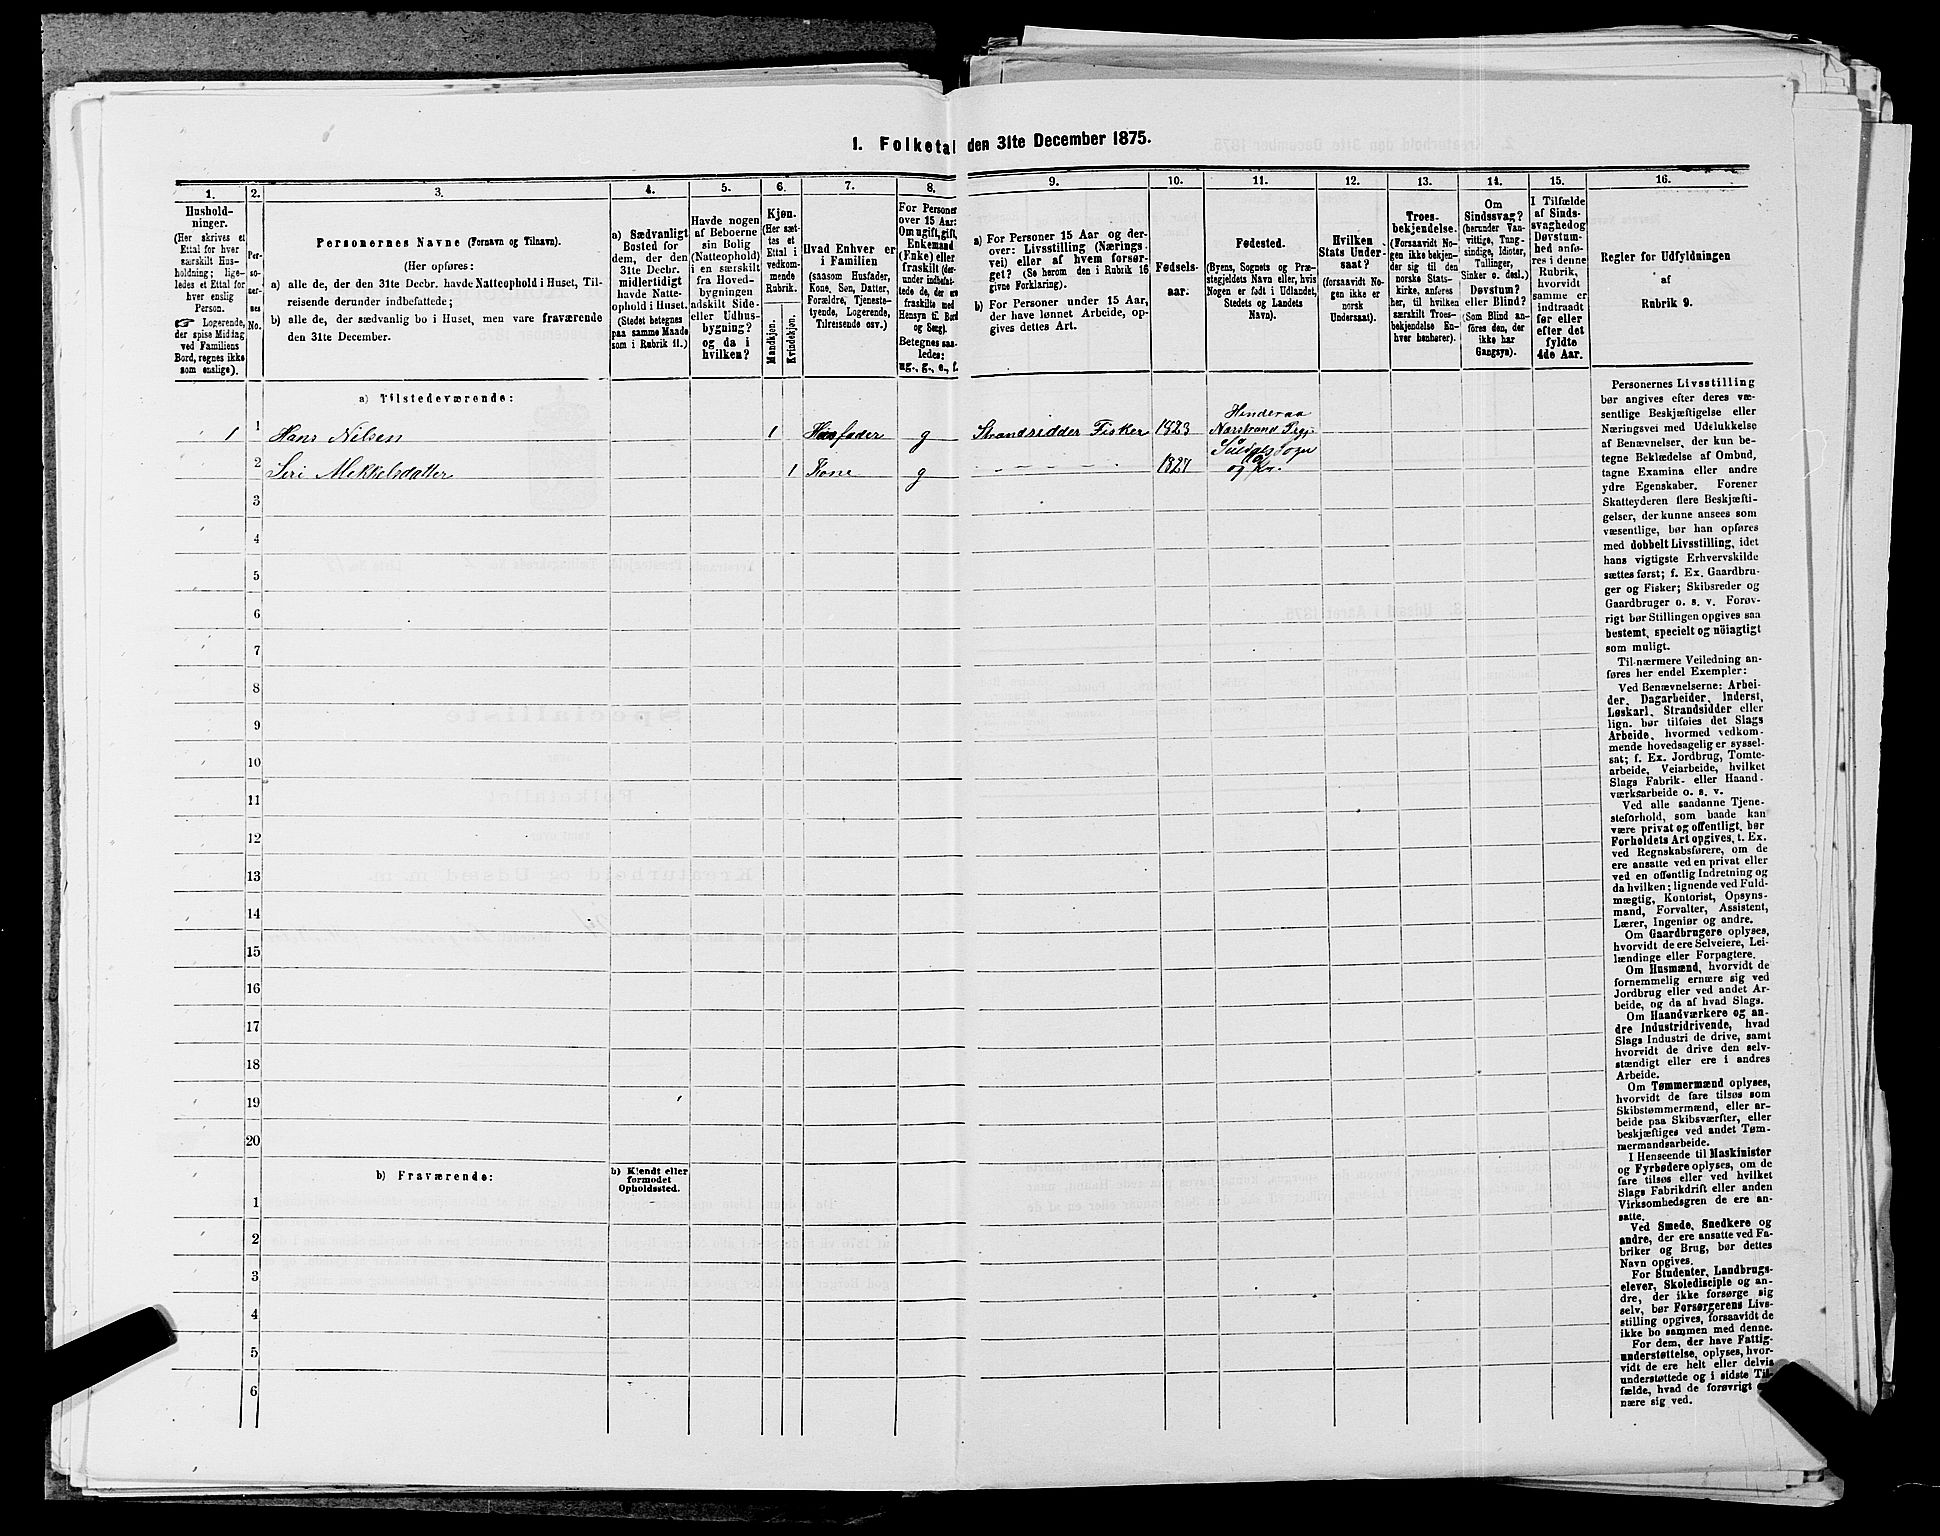 1. Folketal den 31te December 1875.
1.
2.
3.
4.
5.
6.
7.
8.
9.
10.
11.
12.
13.
14.
15.
16.
Hushold-
ninger.
(Her skrives et
Ettal for hver
særskilt Hus-
holdning; lige-
ledes et Ettal for
hver enslig
Person.
☞ Logerende,
der spise Middag
ved Familiens
Bord, regnes ikke
som enslige).
Per-
so-
ner-
nes
No.
Personernes Navne (Fornavn og Tilnavn).
(Her opføres:
a) alle de, der den 31te Decbr. havde Natteophold i Huset, Til-
reisende derunder indbefattede;
b) alle de, der sædvanlig bo i Huset, men vare fraværende
den 31te December.
a) Sædvanligt
Bosted for
dem, der den
31te Decbr.
midlertidigt
havde Natte-
ophold i Huset.
(Stedet betegnes
paa samme Maade
som i Rubrik 11.)
Havde nogen
af Beboerne
sin Bolig
(Natteophold)
i en særskilt
fra Hoved-
bygningen
adskilt Side-
eller Udhus-
bygning?
og da i
hvilken?
Kjøn.
(Her sæt-
tes et
Ettal i
vedkom-
mende
Rubrik.
Mandkjøn.
Kvindekjøn.
Hvad Enhver er
i Familien
(saasom Husfader,
Kone, Søn, Datter,
Forældre, Tjeneste-
tyende, Logerende,
Tilreisende osv.)
For Personer
over 15 Aar:
Om ugift, gift,
Enkemand
(Enke) eller
fraskilt (der-
under indbefat-
tede de, der ere
fraskilte med
Hensyn til Bord
og Seng).
Betegnes saa-
ledes:
ug., g., e., f.
a) For Personer 15 Aar og der-
over: Livsstilling (Nærings-
vei) eller af hvem forsør-
get? (Se herom den i Rubrik 16
givne Forklaring).
b) For Personer under 15 Aar,
der have lønnet Arbeide, op-
gives dettes Art.
Fødsels-
aar.
Fødested.
(Byens, Sognets og Præ-
stegjeldets Navn eller, hvis
Nogen er født i Udlandet,
Stedets og Landets
Navn).
Hvilken
Stats Under-
saat?
(forsaavidt No-
gen ikke er
norsk
Undersaat).
Troes-
bekjendelse.
(Forsaavidt No-
gen ikke bekjen-
der sig til den
norske Stats-
kirke, anføres
her, til hvilken
særskilt Troes-
bekjendelse En-
hver henhører).
Om
Sindssvag?
(herunder Van-
vittige, Tung-
sindige, Idioter,
Tullinger,
Sinker o. desl.)
Døvstum?
eller Blind?
(Som Blind an-
føres den, der
ikke har
Gangsyn).
I Tilfælde
af Sinds-
svaghed og
Døvstum-
hed anfø-
res i denne
Rubrik,
hvorvidt
samme er
indtraadt
før eller
efter det
fyldte
4de Aar.
Regler for Udfyldningen
af
Rubrik 9.
a) Tilstedeværende:
1 1 Hans Nilsen 1 Husfader g Strandsidder Fisker 1823 Hinderaa
Nærstrand Prgj.
2 Siri Mekkelsdatter 1 Kone g - - - - - - - 1827 Suldals Sogn
og Pr.
3
4
5
6
7
8
9
10
11
12
13
14
15
16
17
18
19
20
b) Fraværende:
b) Kjendt eller
formodet
Opholdssted.
1
2
3
4
5
6
Personernes Livsstilling
bør angives efter deres væ-
sentlige Beskjæftigelse eller
Næringsvei med Udelukkelse
af Benævnelser, der kun be-
tegne Beklædelse af Ombud,
tagne Examina eller andre
ydre Egenskaber. Forener
Skatteyderen flere Beskjæfti-
gelser, der kunne ansees som
væsentlige, bør han opføres
med dobbelt Livsstilling, idet
hans vigtigste Erhvervskilde
sættes først; f. Ex. Gaardbru-
ger og Fisker; Skibsreder og
Gaardbruger o. s. v. Forøv-
rigt bør Stillingen opgives saa
bestemt, specielt og nöiagtigt
som muligt.
Til nærmere Veiledning an-
føres her endel Exempler:
Ved Benævnelserne: Arbei-
der, Dagarbeider, Inderst,
Løskarl, Strandsidder eller
lign. bør tilføies det Slags
Arbeide, hvormed vedkom-
mende hovedsagelig er syssel-
sat; f. Ex. Jordbrug, Tomte-
arbeide, Veiarbeide, hvilket
Slags Fabrik- eller Haand-
værksarbeide o. s. v.
Ved alle saadanne Tjene-
steforhold, som baade kan
være privat og offentligt, bør
Forholdets Art opgives, t. Ex.
ved Regnskabsførere, om de
ere ansatte ved en privat eller
ved en offentlig Indretning og
da hvilken; lignende ved Fuld-
mægtig, Kontorist, Opsyns-
mand, Forvalter, Assistent,
Lærer, Ingeniør og andre.
Om Gaardbrugere oplyses,
hvorvidt de ere Selveiere, Lei-
lændinge eller Forpagtere.
Om Husmænd, hvorvidt de
fornemmelig ernære sig ved
Jordbrug eller ved andet Ar-
beide, og da af hvad Slags.
Om Haandværkere og an-
dre Industridrivende, hvad
Slags Industri de drive, samt
hvorvidt de drive den selv-
stændigt eller ere i andres
Arbeide.
Om Tømmermænd oplyses,
hvorvidt de fare tilsøs som
Skibstømmermænd, eller ar-
beide paa Skibsværfter, eller
beskjæftiges ved andet Tøm-
mermandsarbeide.
I Henseende til Maskinister
og Fyrbødere oplyses, om de
fare tilsøs eller ved hvilket
Slags Fabrikdrift eller anden
Virksomhedsgren de ere an-
satte.
Ved Smede, Snedkere og
andre, der ere ansatte ved Fa-
briker og Brug, bør dettes
Navn opgives.
For Studenter, Landbrugs-
elever, Skoledisciple og an-
dre, der ikke forsørge sig
selv, bør Forsørgerens Livs-
stilling opgives, forsaavidt de
ikke bo sammen med denne.
For dem, der have Fattig-
understøttelse, oplyses, hvor-
vidt de ere helt eller delvis
understøttede og i sidste Til-
fælde, hvad de forøvrigt
nære sig ved.